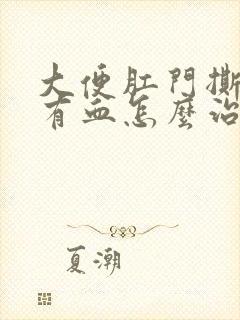 大便肛門撕
有血怎麼治
夏潮